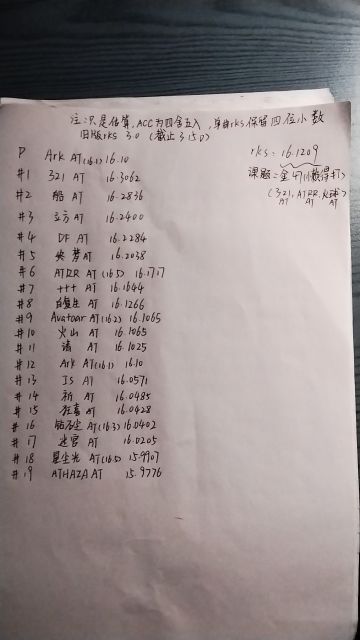 注:只是估算,ACC为四舍五入,单曲rks保留四位小数
旧版rks 3.0 (截止3.15.0)
rks = 16.1209
课题=金47(懒得打)
(321, ATRR, 火球)
AT AT AT
P Ark AT(16.1) 16.10
#1 321 AT 16.3062
#2 船 AT 16.2836
#3 立方 AT 16.2400
#4 DF AT 16.2284
#5 AT 16.2038
#6 ATRR AT (16.5) 16.1717
#7 +++ AT 16.1644
#8 AT 16.1266
#9 Avataar AT(16.2) 16.1065
#10 火山 AT 16.1065
#11 AT 16.1025
#12 Ark AT(16.1) 16.10
#13 IS AT 16.0571
#14 祈 AT 16.0485
#15 狂喜 AT 16.0428
#16 钻石尘 AT(16.3) 16.0402
#17 迷宫 AT 16.0205
#18 星尘光 AT(16.5) 15.9907
#19 ATHAZA AT 15.9776